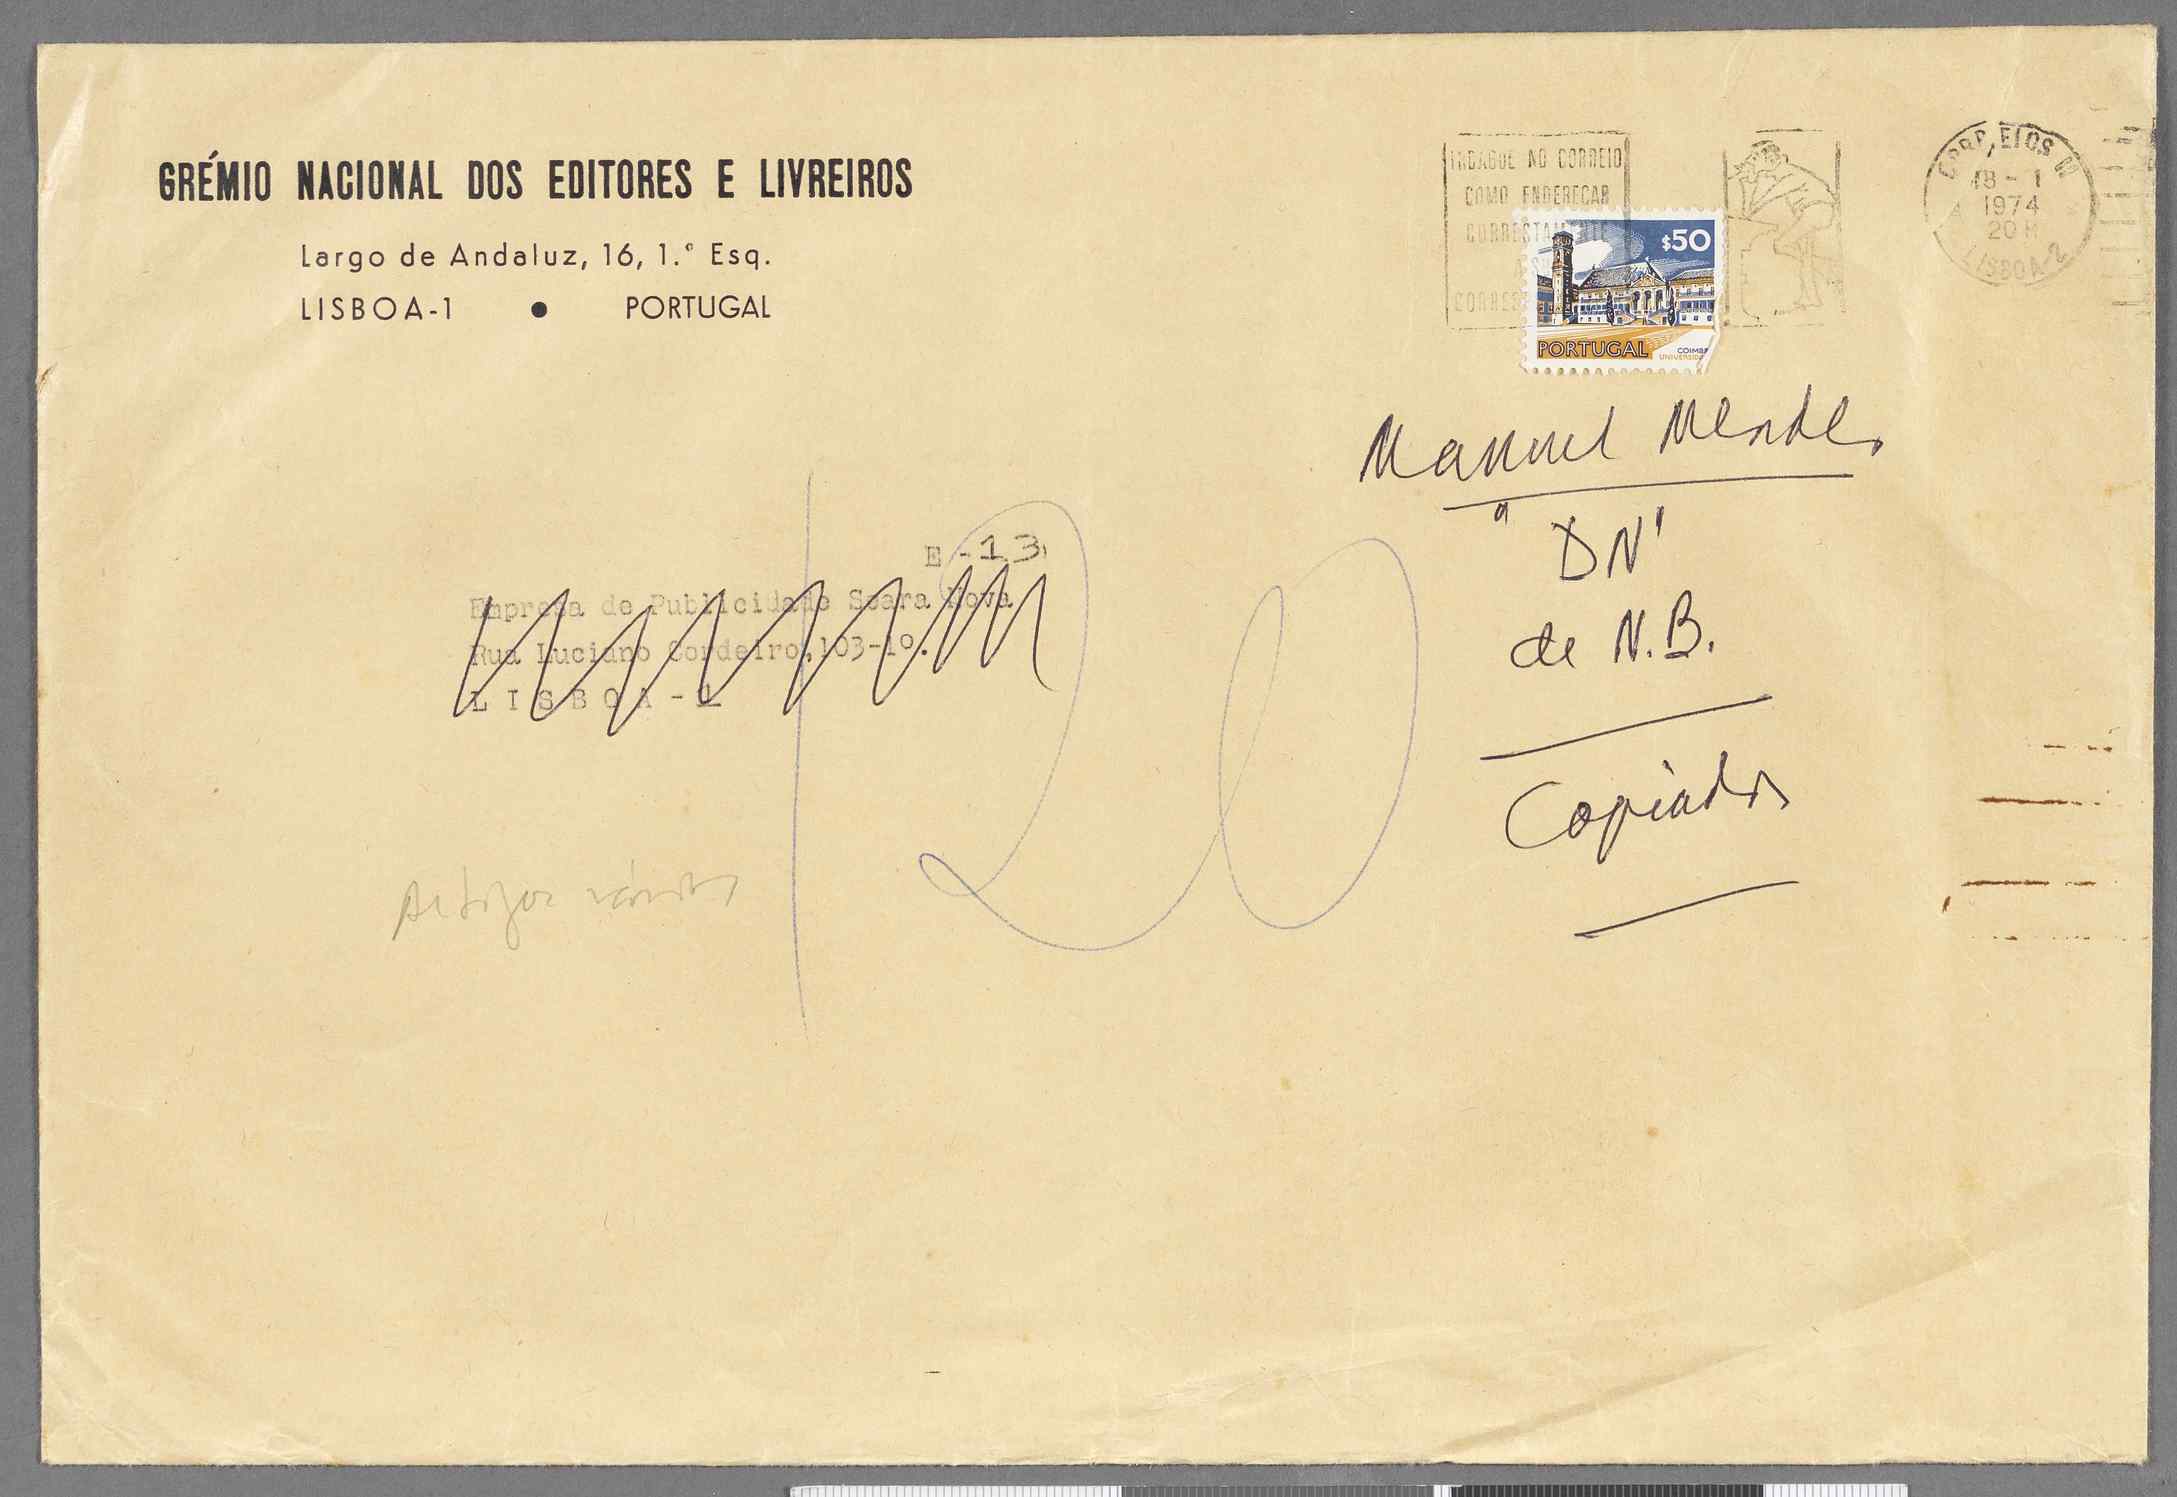 GRÉMIO NACIONAL DOS EDITORES E LIVREIROS
Largo de Andaluz, 16, 1.º Esq.
LISBOA-1 • PORTUGAL
INDAGUE NO CORREIO
COMO ENDEREÇAR
CORRECTAMENTE
A SUA
CORREIOS
18-1
1974
20H
LISBOA-2
$50
PORTUGAL
COIMBR
UNIVERSIDA
Manuel Mendes
"DN"
de N.B.
Copiados
E-13
Empresa de Publicidade Seara Nova
Rua Luciano Cordeiro,103-1º.
LISBOA-1
120
Artigos vários